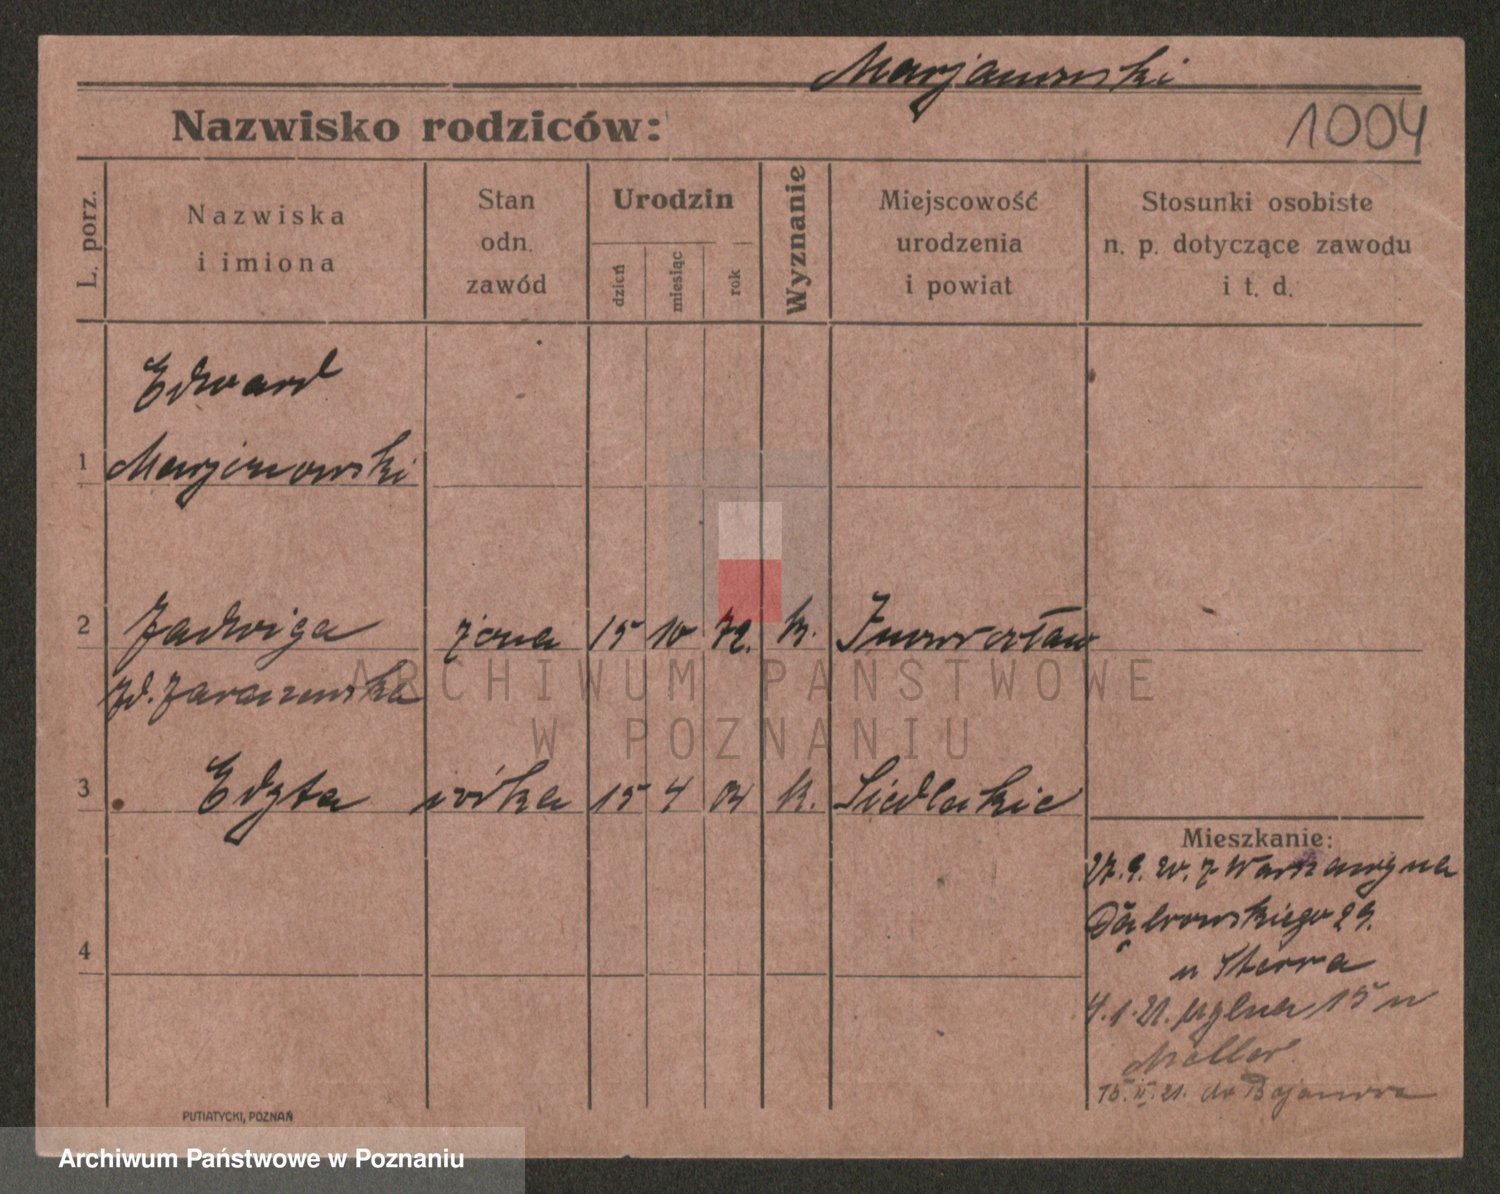 Marjanowski
Nazwisko rodziców:
1004
L. porz.
Nazwiska
i imiona
Stan
odn.
zawód
Urodzin
dzień
miesiąc
rok
Wyznanie
Miejscowość
urodzenia
i powiat
Stosunki osobiste
n. p. dotyczące zawodu
i t. d.
Edward
1 Marjanowski
2 Jadwiga żona 15 10 72. k. Inowrocław
zd. Jaraczewska
3 Edyta córka 15 4 04 k. Siedleckie
Mieszkanie:
27.9.20. z Warszawy na
Dąbrowskiego 29.
u Sterra
4
4.1.21. 15 u
Müller
15.II.21. do Bojanowa
PUTIATYCKI, POZNAŃ
ARCHIWUM PAŃSTWOWE
W POZNANIU
Archiwum Państwowe w Poznaniu